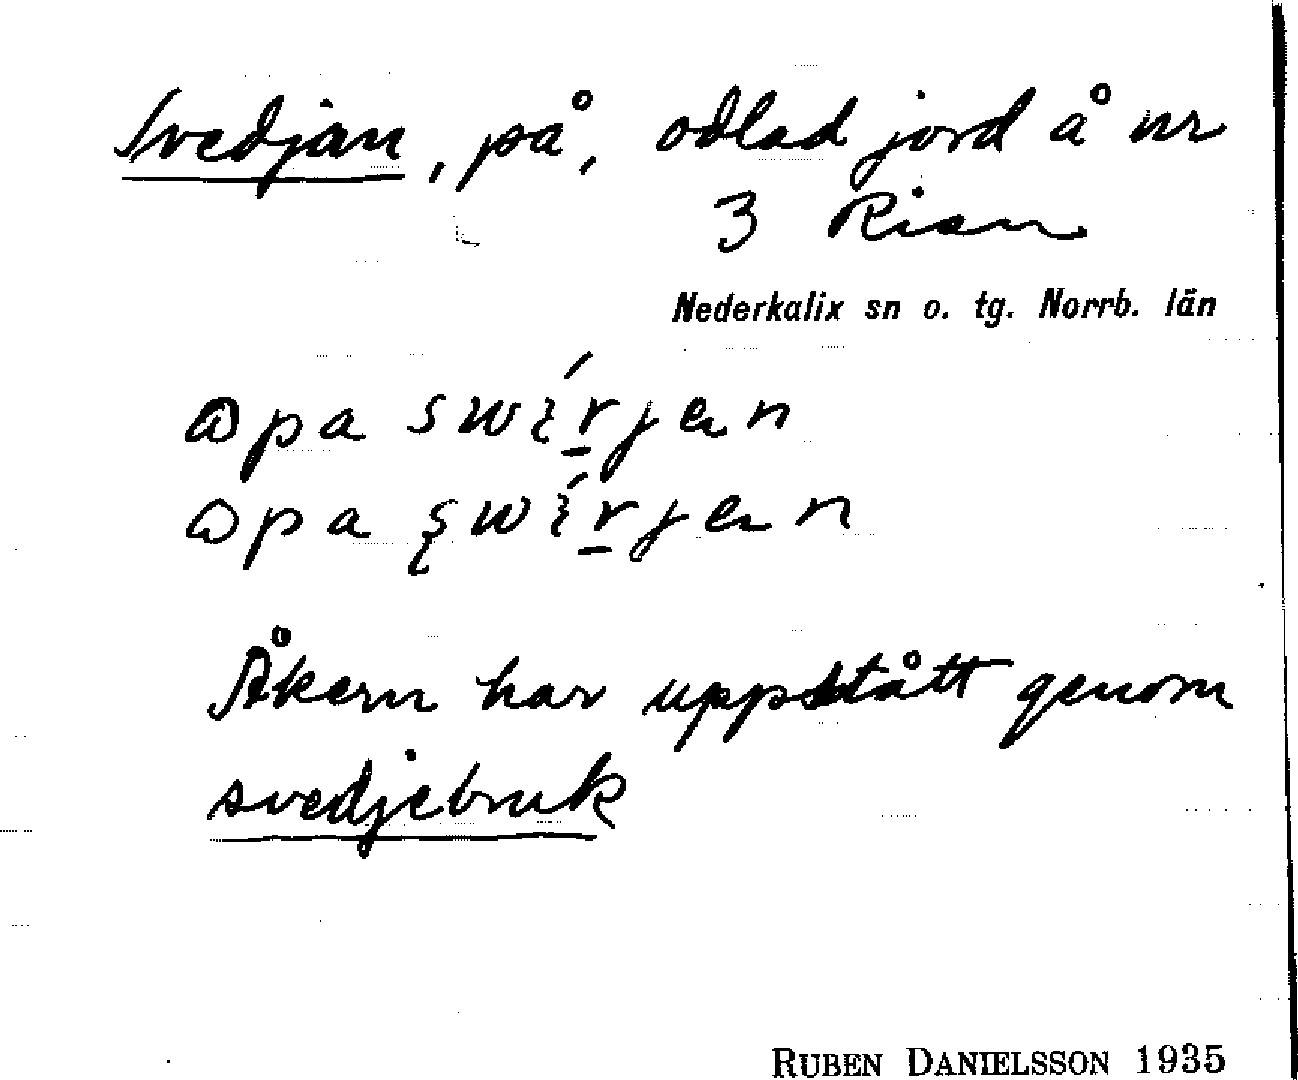 Svedjan, på, odlad jord å nr
3 Rian
Nederkalix sn o. tg. Norrb. län
Åkern har uppstått genom
svedjebruk
RUBEN DANIELSSON 1935